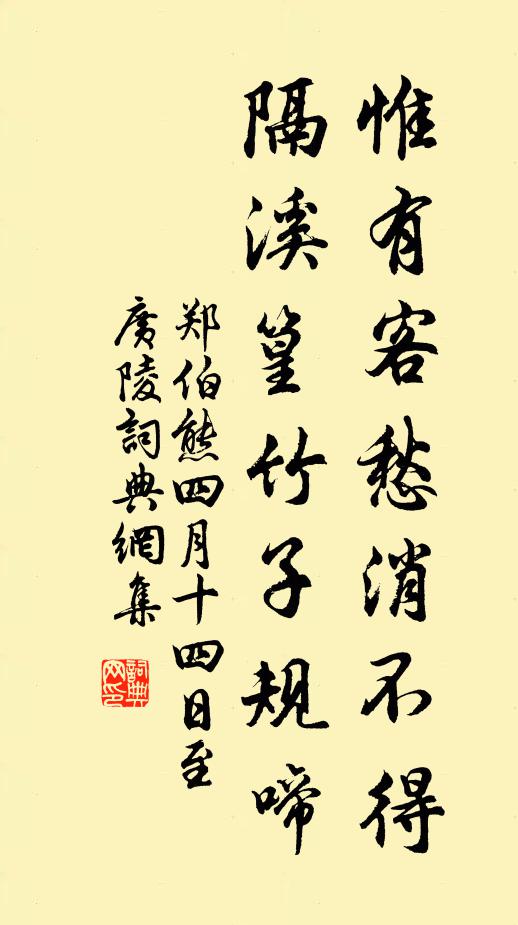 惟有客愁消不得
隔溪篁竹子規啼
郑伯熊四月十四日至
廣陵詞典網集
詞典网印